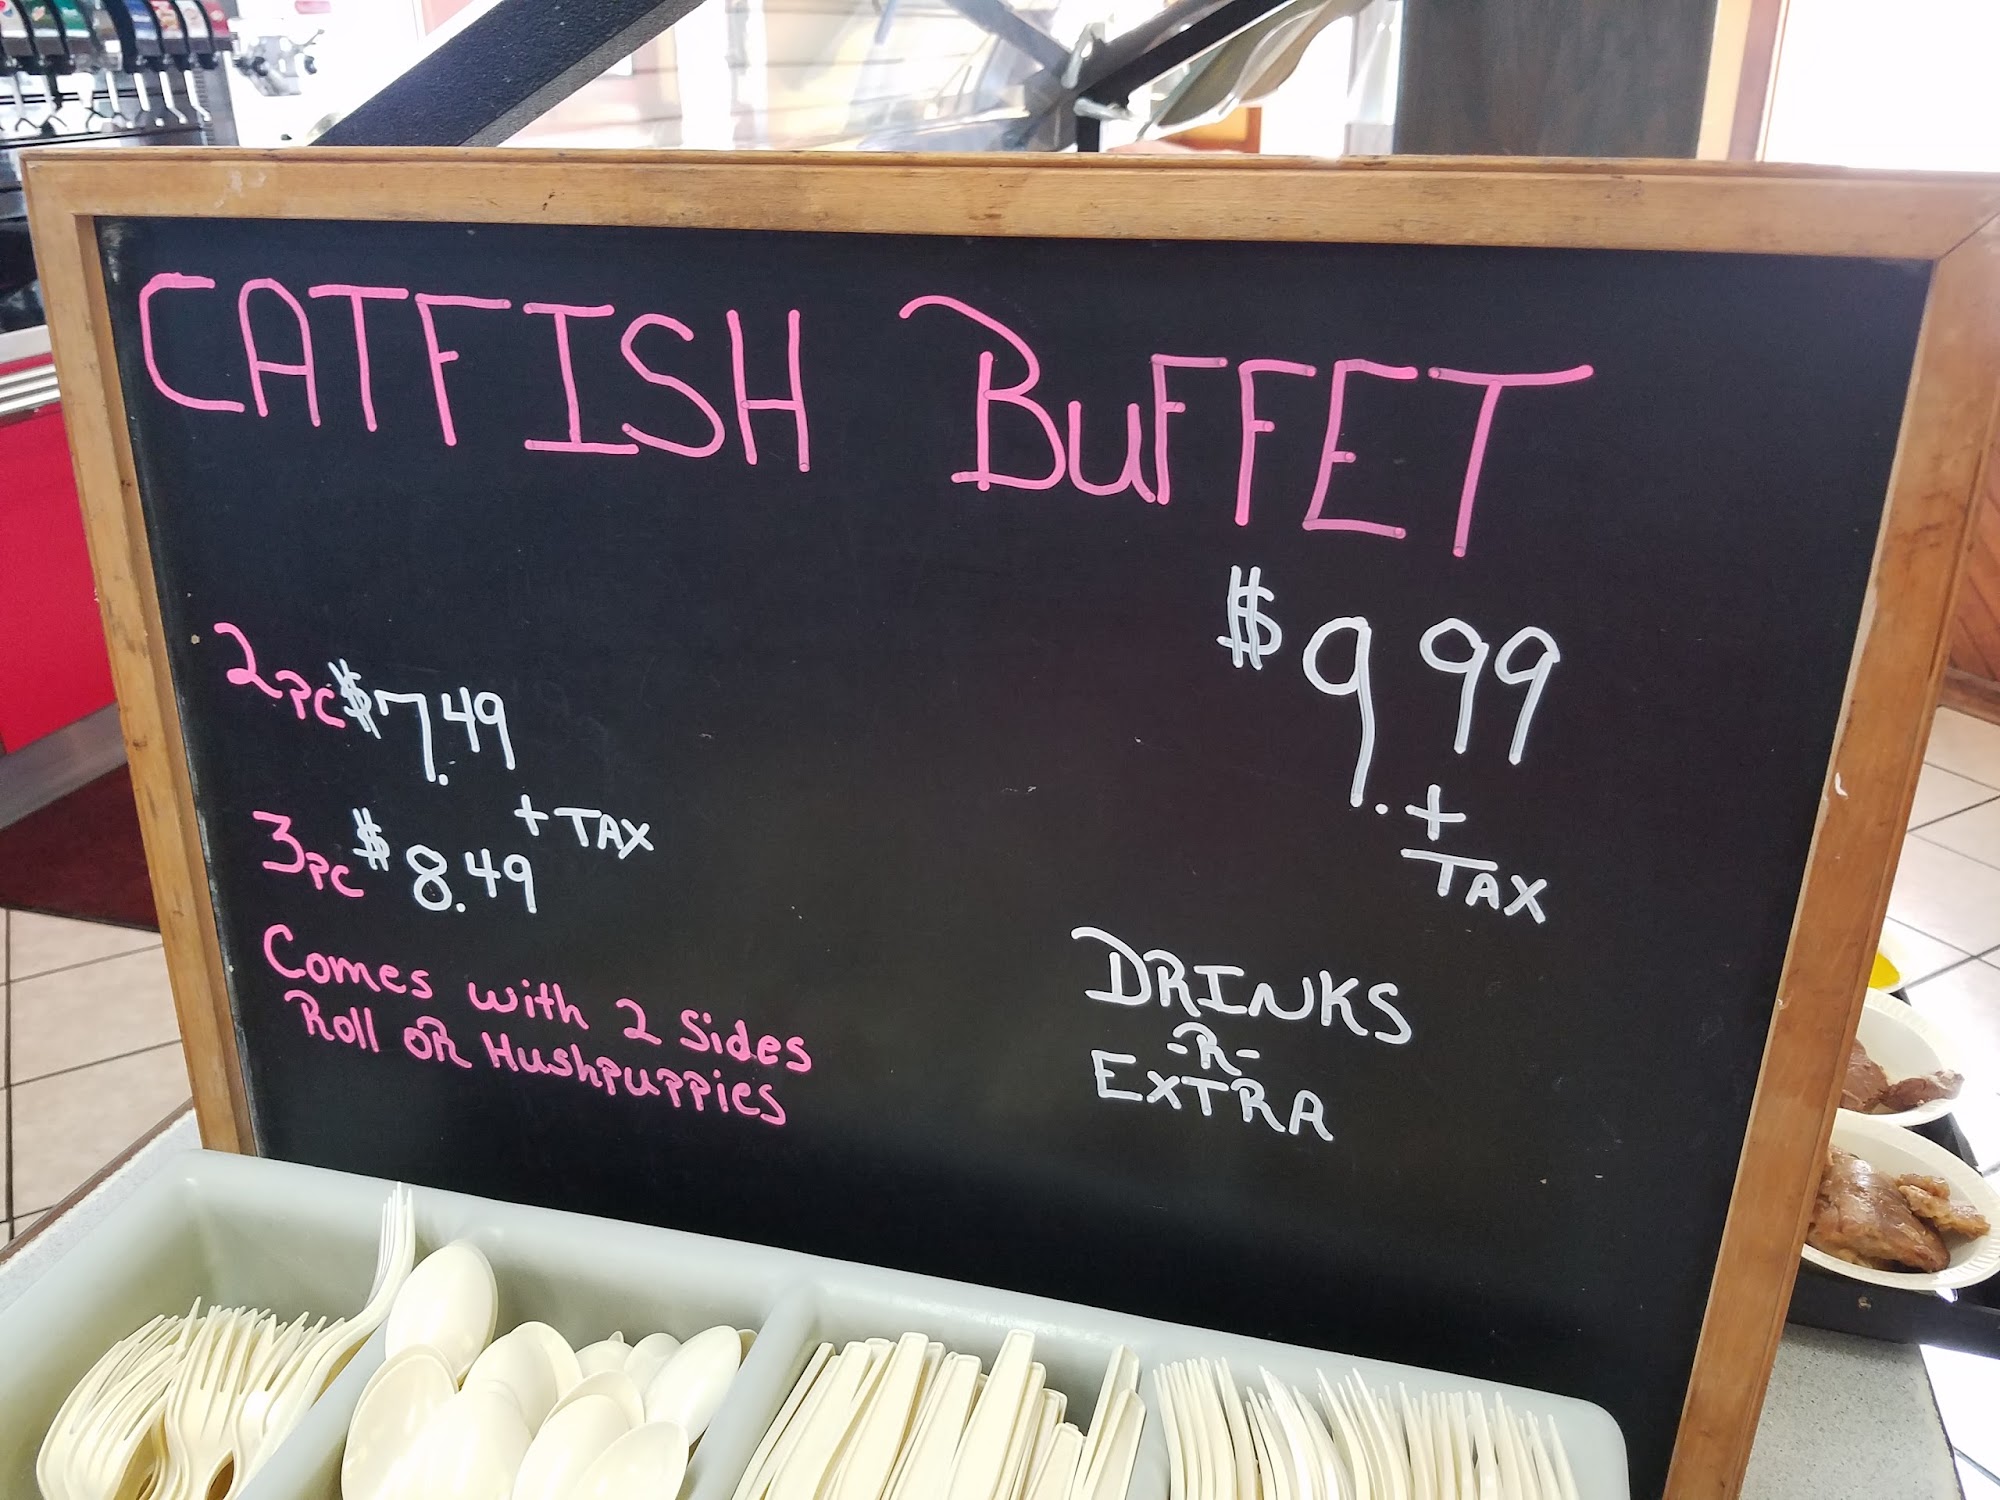 CATFISH BUFFET
$9.99
+
TAX
2PC $7.49
+ TAX
3PC $8.49
Comes with 2 Sides
Roll OR Hushpuppies
DRINKS
-R-
EXTRA